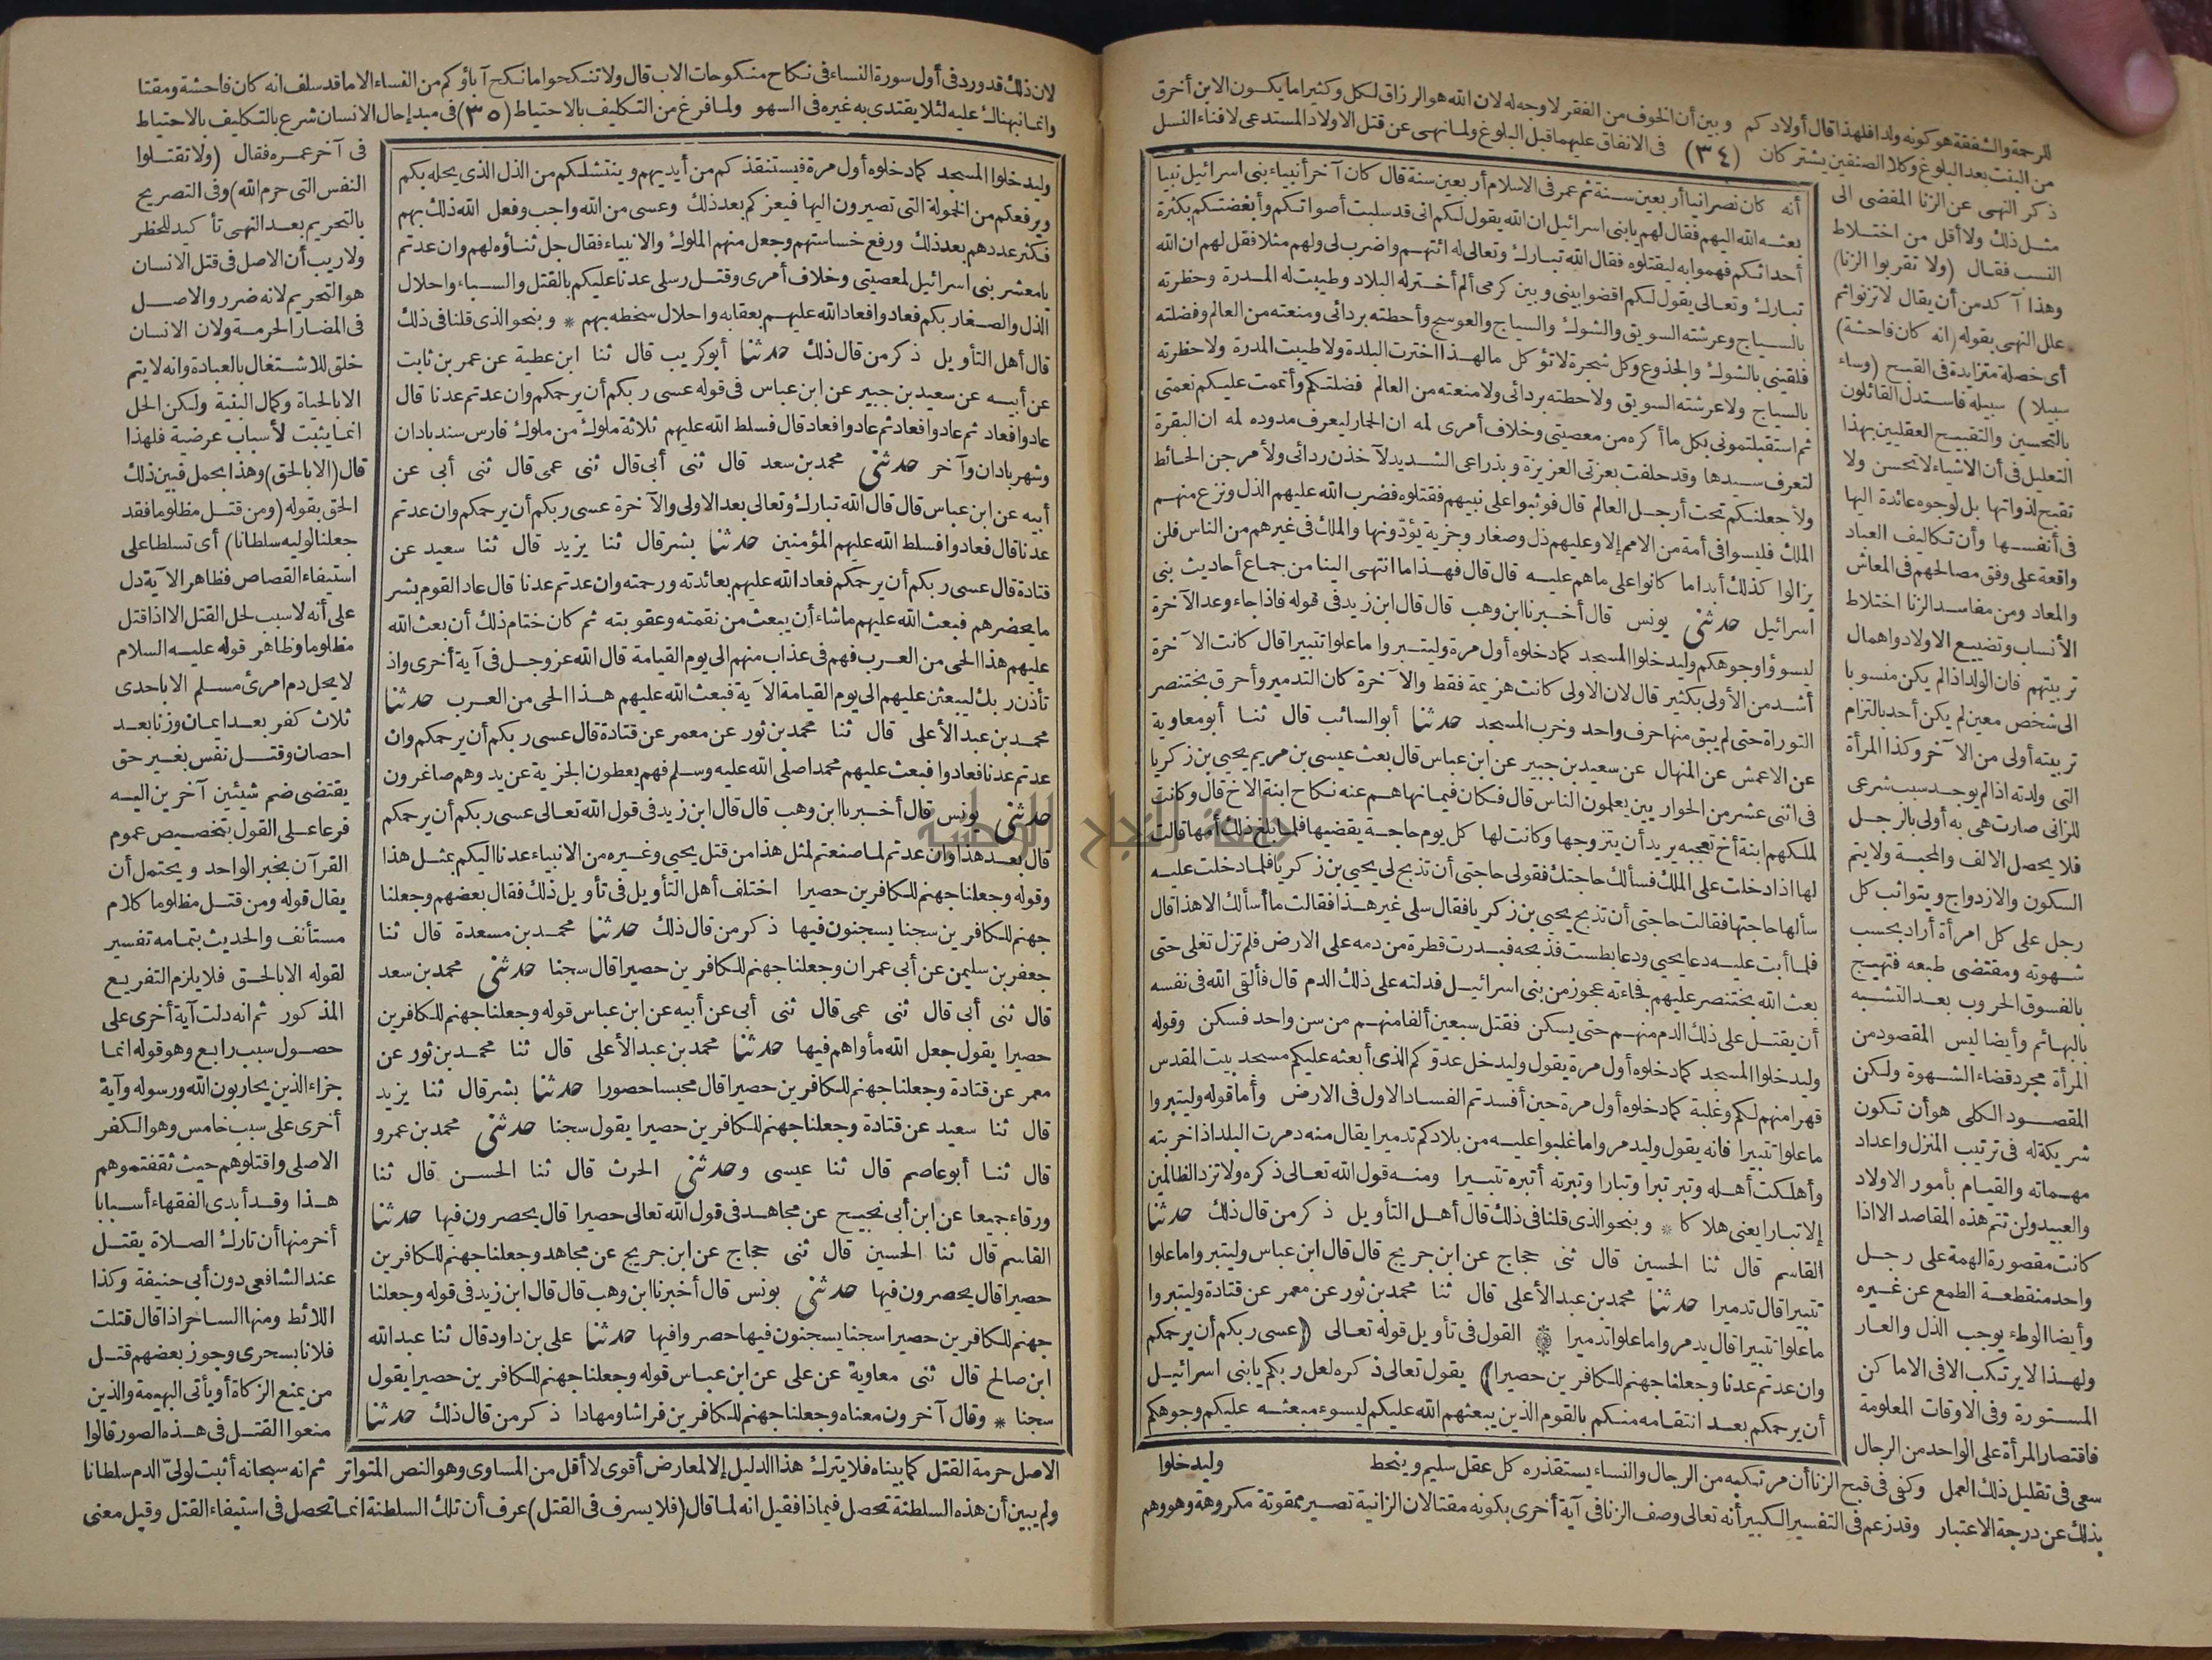 للرحمة والشفقة هو كونه ولدا فلهذا قال أولادكم وبين أن الخوف من الفقر لا وجه له لان الله هو الرزاق لكل وكثيرا ما يكون الابن أخرق
من البنت بعد البلوغ وكلا الصنفين يشتركان (٣٤) فى الانفاق عليهما قبل البلوغ ولما نهى عن قتل الاولاد المستدعى لافناء النسل
ذكر النهى عن الزنا المفضى الى
مثل ذلك ولا أقل من اختلاط
النسب فقال (ولا تقربوا الزنا)
وهذا آكد من أن يقال لا تزنوا ثم
علل النهى بقوله (انه كان فاحشة)
أى خصلة متزايدة فى القبح (وساء
سبيلا) سبيله فاستدل القائلون
بالتحسين والتقبيح العقليين بهذا
التعليل فى أن الاشياء لا تحسن ولا
تقبح لذواتها بل لوجوه عائدة اليها
فى أنفسها وأن تكاليف العباد
واقعة على وفق مصالحهم فى المعاش
والمعاد ومن مفاسد الزنا اختلاط
الأنساب وتضييع الاولاد واهمال
تربيتهم فان الولد اذا لم يكن منسوبا
الى شخص معين لم يكن أحد بالتزام
تربيته أولى من الآخر وكذا المرأة
التى ولدته اذا لم يوجد سبب شرعى
للزانى صارت هى به أولى بالرجل
فلا يحصل الالف والمحبة ولا يتم
السكون والازدواج ويتواثب كل
رجل على كل امرأة أراد بحسب
شهوته ومقتضى طبعه فتهيج
بالفسوق الحروب بعد التشبه
بالبهائم وأيضا ليس المقصود من
المرأة مجرد قضاء الشهوة ولكن
المقصود الكلى هو أن تكون
شريكة له فى ترتيب المنزل واعداد
مهماته والقيام بأمور الاولاد
والعبيد ولن تتم هذه المقاصد الا اذا
كانت مقصورة الهمة على رجل
واحد منقطعة الطمع عن غيره
وأيضا الوطء يوجب الذل والعار
ولهذا لا يرتكب الا فى الاماكن
المستورة وفى الاوقات المعلومة
فاقتصار المرأة على الواحد من الرجال
أنه كان نصرانيا أربعين سنة ثم عمر فى الاسلام أربعين سنة قال كان آخر أنبياء بنى اسرائيل نبيا
بعثه الله اليهم فقال لهم يا بنى اسرائيل ان الله يقول لكم انى قد سلبت أصواتكم وأبغضتكم بكثرة
أحداثكم فهموا به ليقتلوه فقال الله تبارك وتعالى له ائتهم واضرب لى ولهم مثلا فقل لهم ان الله
تبارك وتعالى يقول لكم اقضوا بينى وبين كرمى ألم أختر له البلاد وطيبت له المدرة وحظرته
بالسياج وعرشته السويق والشوك والسياج والعوسج وأحطته بردائى ومنعته من العالم وفضلته
فلقينى بالشوك والجذوع وكل شجرة لا تؤكل ما لهذا اخترت البلدة ولا طيبت المدرة ولا حظرته
بالسياج ولا عرشته السويق ولا حطته بردائى ولا منعته من العالم فضلتكم وأتممت عليكم نعمتى
ثم استقبلتمونى بكل ما أكره من معصيتى وخلاف أمرى لمه ان الحمار ليعرف مدوده لمه ان البقرة
لتعرف سيدها وقد حلفت بعزتى العزيزة وبذراعى الشديد لآخذن ردائى ولأمرجن الحائط
ولأجعلنكم تحت أرجل العالم قال فوثبوا على نبيهم فقتلوه فضرب الله عليهم الذل ونزع منهم
الملك فليسوا فى أمة من الامم إلا وعليهم ذل وصغار وجزية يؤدّونها والملك فى غيرهم من الناس فلن
يزالوا كذلك أبدا ما كانوا على ما هم عليه قال قال فهذا ما انتهى الينا من جماع أحاديث بنى
اسرائيل حدثنى يونس قال أخبرنا ابن وهب قال قال ابن زيد فى قوله فاذا جاء وعد الآخرة
ليسوؤا وجوهكم وليدخلوا المسجد كما دخلوه أول مرة وليتبروا ما علوا تتبيرا قال كانت الآخرة
أشد من الأولى بكثير قال لان الاولى كانت هزيمة فقط والآخرة كان التدمير وأحرق بختنصر
التوراة حتى لم يبق منها حرف واحد وخرب المسجد حدثنا أبو السائب قال ثنا أبو معاوية
عن الاعمش عن المنهال عن سعيد بن جبير عن ابن عباس قال بعث عيسى بن مريم يحيى بن زكريا
فى اثنى عشر من الحواريين يعلمون الناس قال فكان فيما نهاهم عنه نكاح ابنة الاخ قال وكانت
لملكهم ابنة أخ تعجبه يريد أن يتزوجها وكانت لها كل يوم حاجة يقضيها فلما بلغ ذلك أمها قالت
لها اذا دخلت على الملك فسألك حاجتك فقولى حاجتى أن تذبح لى يحيى بن زكريا فلما دخلت عليه
سألها حاجتها فقالت حاجتى أن تذبح يحيى بن زكريا فقال سلى غير هذا فقالت ما أسألك الا هذا قال
فلما أبت عليه دعا يحيى ودعا بطست فذبحه فبدرت قطرة من دمه على الارض فلم تزل تغلى حتى
بعث الله بختنصر عليهم فجاءته عجوز من بنى اسرائيل فدلته على ذلك الدم قال فألقى الله فى نفسه
أن يقتل على ذلك الدم منهم حتى يسكن فقتل سبعين ألفا منهم من سن واحد فسكن وقوله
وليدخلوا المسجد كما دخلوه أول مرة يقول وليدخل عدوّكم الذى أبعثه عليكم مسجد بيت المقدس
قهرا منهم لكم وغلبة كما دخلوه أول مرة حين أفسدتم الفساد الاول فى الارض وأما قوله وليتبروا
ما علوا تتبيرا فانه يقول وليدمروا ما غلبوا عليه من بلادكم تدميرا يقال منه دمرت البلد اذا خربته
وأهلكت أهله وتبر تبرا وتبارا وتبرته أتبره تتبيرا ومنه قول الله تعالى ذكره ولا تزد الظالمين
إلا تبارا يعنى هلاكا * وبنحو الذى قلنا فى ذلك قال أهل التأويل ذكر من قال ذلك حدثنا
القاسم قال ثنا الحسين قال ثنى حجاج عن ابن جريج قال قال ابن عباس وليتبروا ما علوا
تتبيرا قال تدميرا حدثنا محمد بن عبد الأعلى قال ثنا محمد بن ثور عن معمر عن قتادة وليتبروا
ما علوا تتبيرا قال يدمروا ما علوا تدميرا * القول فى تأويل قوله تعالى (عسى ربكم أن يرحمكم
وان عدتم عدنا وجعلنا جهنم للكافرين حصيرا) يقول تعالى ذكره لعل ربكم يا بنى اسرائيل
أن يرحمكم بعد انتقامه منكم بالقوم الذين يبعثهم الله عليكم ليسوء مبعثه عليكم وجوهكم
وليدخلوا
سعى فى تقليل ذلك العمل وكفى فى قبح الزنا أن مرتكبه من الرجال والنساء يستقذره كل عقل سليم وينحط
بذلك عن درجة الاعتبار وقد زعم فى التفسير الكبير أنه تعالى وصف الزنا فى آية أخرى بكونه مقتا لان الزانية تصير ممقوتة مكروهة وهو وهم
لان ذلك قد ورد فى أول سورة النساء فى نكاح منكوحات الاب قال ولا تنكحوا ما نكح آباؤكم من النساء الا ما قد سلف انه كان فاحشة ومقتا
وانما نبهناك عليه لئلا يقتدى به غيره فى السهو ولما فرغ من التكليف بالاحتياط (٣٥) فى مبدإ حال الانسان شرع بالتكليف بالاحتياط
فى آخر عمره فقال (ولا تقتلوا
النفس التى حرم الله) وفى التصريح
بالتحريم بعد النهى تأكيد للحظر
ولا ريب أن الاصل فى قتل الانسان
هو التحريم لانه ضرر والاصل
فى المضار الحرمة ولان الانسان
خلق للاشتغال بالعبادة وانه لا يتم
الا بالحياة وكمال البنية ولكن الحل
انما يثبت لأسباب عرضية فلهذا
قال (الا بالحق) وهذا مجمل فبين ذلك
الحق بقوله (ومن قتل مظلوما فقد
جعلنا لوليه سلطانا) أى تسلطا على
استيفاء القصاص فظاهر الآية دل
على أنه لا سبب لحل القتل الا اذا قتل
مظلوما وظاهر قوله عليه السلام
لا يحل دم امرئ مسلم الا باحدى
ثلاث كفر بعد ايمان وزنا بعد
احصان وقتل نفس بغير حق
يقتضى ضم شيئين آخرين اليه
فرعا على القول بتخصيص عموم
القرآن بخبر الواحد ويحتمل أن
يقال قوله ومن قتل مظلوما كلام
مستأنف والحديث بتمامه تفسير
لقوله الا بالحق فلا يلزم التفريع
المذكور ثم انه دلت آية أخرى على
حصول سبب رابع وهو قوله انما
جزاء الذين يحاربون الله ورسوله وآية
أخرى على سبب خامس وهو الكفر
الاصلى واقتلوهم حيث ثقفتموهم
هذا وقد أبدى الفقهاء أسبابا
أخر منها أن تارك الصلاة يقتل
عند الشافعى دون أبى حنيفة وكذا
اللائط ومنها الساحر اذا قال قتلت
فلانا بسحرى وجوز بعضهم قتل
من يمنع الزكاة أو يأتى البهيمة والذين
منعوا القتل فى هذه الصور قالوا
وليدخلوا المسجد كما دخلوه أول مرة فيستنقذكم من أيديهم وينتشلكم من الذل الذى يحله بكم
ويرفعكم من الخمولة التى تصيرون اليها فيعزكم بعد ذلك وعسى من الله واجب وفعل الله ذلك بهم
فكثر عددهم بعد ذلك ورفع خساستهم وجعل منهم الملوك والانبياء فقال جل ثناؤه لهم وان عدتم
يا معشر بنى اسرائيل لمعصيتى وخلاف أمرى وقتل رسلى عدنا عليكم بالقتل والسباء واحلال
الذل والصغار بكم فعادوا فعاد الله عليهم بعقابه واحلال سخطه بهم * وبنحو الذى قلنا فى ذلك
قال أهل التأويل ذكر من قال ذلك حدثنا أبو كريب قال ثنا ابن عطية عن عمر بن ثابت
عن أبيه عن سعيد بن جبير عن ابن عباس فى قوله عسى ربكم أن يرحمكم وان عدتم عدنا قال
عادوا فعاد ثم عادوا فعاد ثم عادوا فعاد قال فسلط الله عليهم ثلاثة ملوك من ملوك فارس سندبادان
وشهربادان وآخر حدثنى محمد بن سعد قال ثنى أبى قال ثنى عمى قال ثنى أبى عن
أبيه عن ابن عباس قال قال الله تبارك وتعالى بعد الاولى والآخرة عسى ربكم أن يرحمكم وان عدتم
عدنا قال فعادوا فسلط الله عليهم المؤمنين حدثنا بشر قال ثنا يزيد قال ثنا سعيد عن
قتادة قال عسى ربكم أن يرحمكم فعاد الله عليهم بعائدته ورحمته وان عدتم عدنا قال عاد القوم بشر
ما يحضرهم فبعث الله عليهم ما شاء أن يبعث من نقمته وعقوبته ثم كان ختام ذلك أن بعث الله
عليهم هذا الحى من العرب فهم فى عذاب منهم الى يوم القيامة قال الله عز وجل فى آية أخرى واذ
تأذن ربك ليبعثن عليهم الى يوم القيامة الآية فبعث الله عليهم هذا الحى من العرب حدثنا
محمد بن عبد الأعلى قال ثنا محمد بن ثور عن معمر عن قتادة قال عسى ربكم أن يرحمكم وان
عدتم عدنا فعادوا فبعث عليهم محمدا صلى الله عليه وسلم فهم يعطون الجزية عن يد وهم صاغرون
حدثنى يونس قال أخبرنا ابن وهب قال قال ابن زيد فى قول الله تعالى عسى ربكم أن يرحمكم
قال بعد هذا وان عدتم لما صنعتم لمثل هذا من قتل يحيى وغيره من الانبياء عدنا اليكم بمثل هذا
وقوله وجعلنا جهنم للكافرين حصيرا اختلف أهل التأويل فى تأويل ذلك فقال بعضهم وجعلنا
جهنم للكافرين سجنا يسجنون فيها ذكر من قال ذلك حدثنا محمد بن مسعدة قال ثنا
جعفر بن سليمن عن أبى عمران وجعلنا جهنم للكافرين حصيرا قال سجنا حدثنى محمد بن سعد
قال ثنى أبى قال ثنى عمى قال ثنى أبى عن أبيه عن ابن عباس قوله وجعلنا جهنم للكافرين
حصيرا يقول جعل الله مأواهم فيها حدثنا محمد بن عبد الأعلى قال ثنا محمد بن ثور عن
معمر عن قتادة وجعلنا جهنم للكافرين حصيرا قال محبسا حصورا حدثنا بشر قال ثنا يزيد
قال ثنا سعيد عن قتادة وجعلنا جهنم للكافرين حصيرا يقول سجنا حدثنى محمد بن عمرو
قال ثنا أبو عاصم قال ثنا عيسى وحدثنى الحرث قال ثنا الحسن قال ثنا
ورقاء جميعا عن ابن أبى نجيح عن مجاهد فى قول الله تعالى حصيرا قال يحصرون فيها حدثنا
القاسم قال ثنا الحسين قال ثنى حجاج عن ابن جريج عن مجاهد وجعلنا جهنم للكافرين
حصيرا قال يحصرون فيها حدثنى يونس قال أخبرنا ابن وهب قال قال ابن زيد فى قوله وجعلنا
جهنم للكافرين حصيرا سجنا يسجنون فيها حصروا فيها حدثنا على بن داود قال ثنا عبد الله
ابن صالح قال ثنى معاوية عن على عن ابن عباس قوله وجعلنا جهنم للكافرين حصيرا يقول
سجنا * وقال آخرون معناه وجعلنا جهنم للكافرين فراشا ومهادا ذكر من قال ذلك حدثنا
الاصل حرمة القتل كما بيناه فلا يترك هذا الدليل إلا لمعارض أقوى لا أقل من المساوى وهو النص المتواتر ثم انه سبحانه أثبت لولىّ الدم سلطانا
ولم يبين أن هذه السلطنة تحصل فيماذا فقيل انه لما قال (فلا يسرف فى القتل) عرف أن تلك السلطنة انما تحصل فى استيفاء القتل وقيل معنى
جامعة النجاح الوطنية